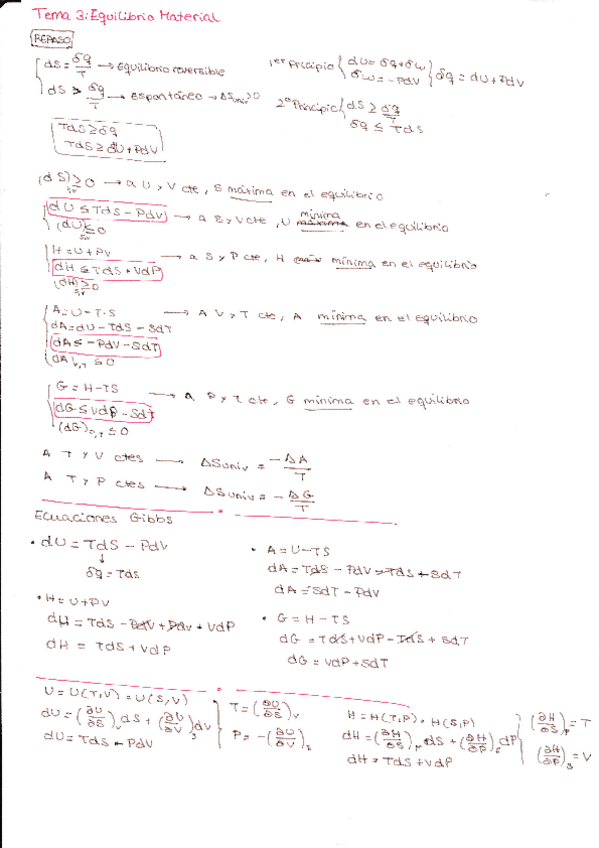 Tema 3: Equilibrio Material
REPASO
dS = δq/T → Equilibrio reversible
dS > δq/T → Espontáneo → ΔSuniv > 0
1er Principio { dU = δq + δw
δw = -PdV } δq = dU + PdV
2º Principio { dS ≥ δq/T
δq ≤ TdS
TdS ≥ δq
TdS ≥ dU + PdV
(dS) ≥ 0 → a U y V cte, S máxima en el equilibrio
dU ≤ TdS - PdV → a S y V cte, U mínima en el equilibrio
(dU) ≤ 0
H = U + PV
dH ≤ TdS + VdP → a S y P cte, H mínima en el equilibrio
(dH) ≥ 0
A = U - T·S → A V y T cte, A mínima en el equilibrio
dA = dU - TdS - SdT
dA ≤ -PdV - SdT
(dA)V,T ≤ 0
G = H - TS → a P y T cte, G mínima en el equilibrio
dG ≤ VdP - SdT
(dG)P,T ≤ 0
A T y V ctes → ΔSuniv = -ΔA/T
A T y P ctes → ΔSuniv = -ΔG/T
Ecuaciones Gibbs
• dU = TdS - PdV
↓
δq = TdS
• A = U - TS
dA = TdS - PdV - TdS + SdT
dA = SdT - PdV
• H = U + PV
dH = TdS - PdV + PdV + VdP
dH = TdS + VdP
• G = H - TS
dG = TdS + VdP - TdS + SdT
dG = VdP + SdT
U = U(T,V) = U(S,V)
dU = (∂U/∂S)V dS + (∂U/∂V)S dV
dU = TdS - PdV
T = (∂U/∂S)V
P = -(∂U/∂V)S
H = H(T,P) = H(S,P)
dH = (∂H/∂S)P dS + (∂H/∂P)S dP
dH = TdS + VdP
(∂H/∂S)P = T
(∂H/∂P)S = V